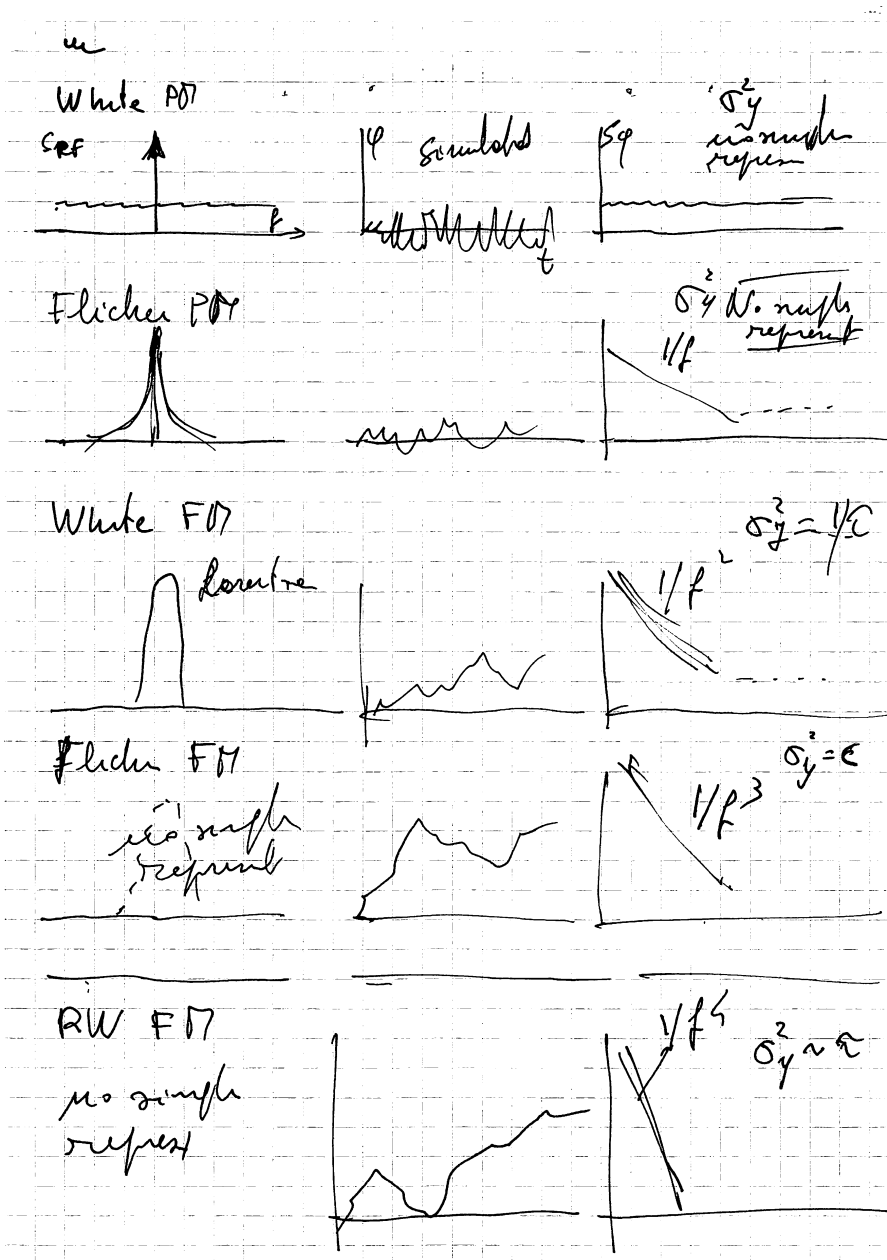 White PM
S_RF
f
φ
Simulated
t
Sφ
σ²y
no simple
represen
Flicker PM
1/f
σ²y No simple
represent
White FM
Lorentze
1/f²
σ²y = 1/τ
Flicker FM
no simple
represent
1/f³
σ²y = C
RW FM
no simple
represt
1/f⁴
σ²y ~ τ